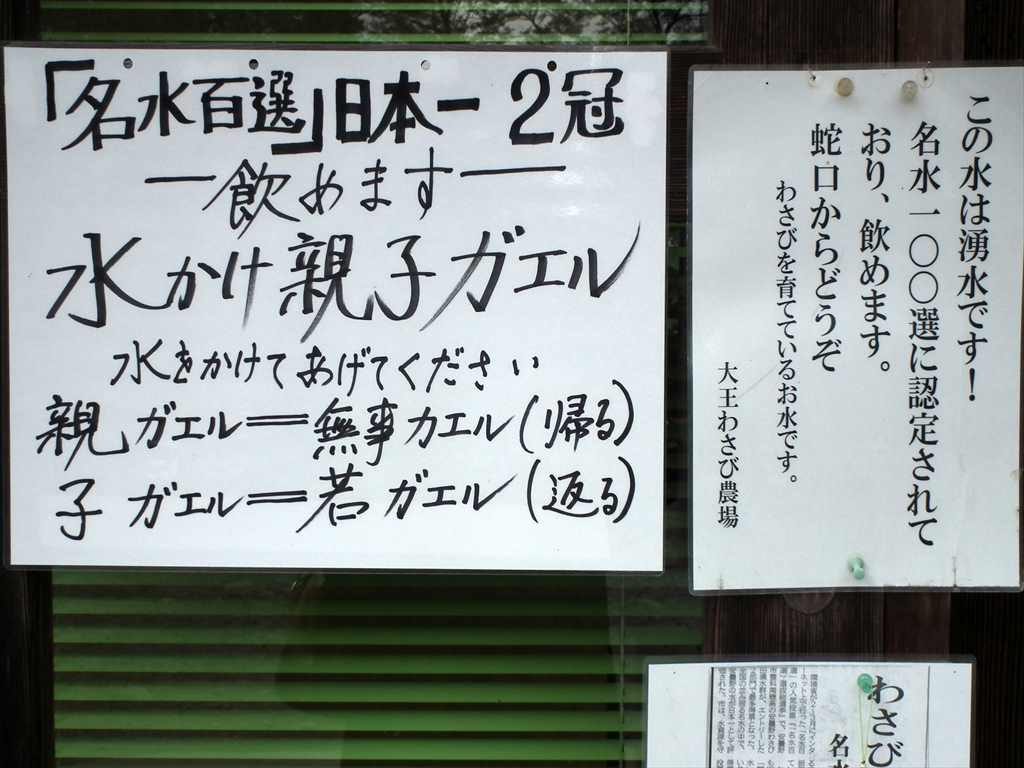 「名水百選」日本一 2冠
ー飲めますー
水かけ親子ガエル
水をかけてあげてください
親 ガエル＝無事カエル(帰る)
子 ガエル＝若ガエル(返る)
この水は湧水です！
名水一〇〇選に認定されて
おり、飲めます。
蛇口からどうぞ
わさびを育てているお水です。
大王わさび農場
わさび
名水